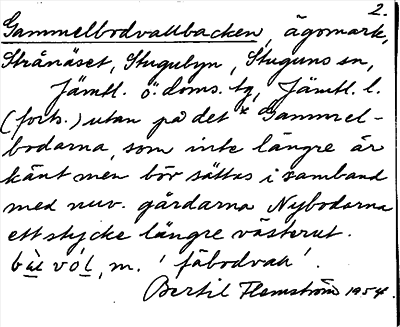 2.
Gammelbodvallbacken, ägomark,
Strånäset, Stugubyn, Stuguns sn,
Jämtl. ö. doms. tg, Jämtl. l.
(forts.) utan på det x Gammel-
bodarna, som inte längre är
känt men bör sättas i samband
med nuv. gårdarna Nybodarna
ett stycke längre västerut.
m. 'fäbodvall'.
Bertil Flemström 1954.